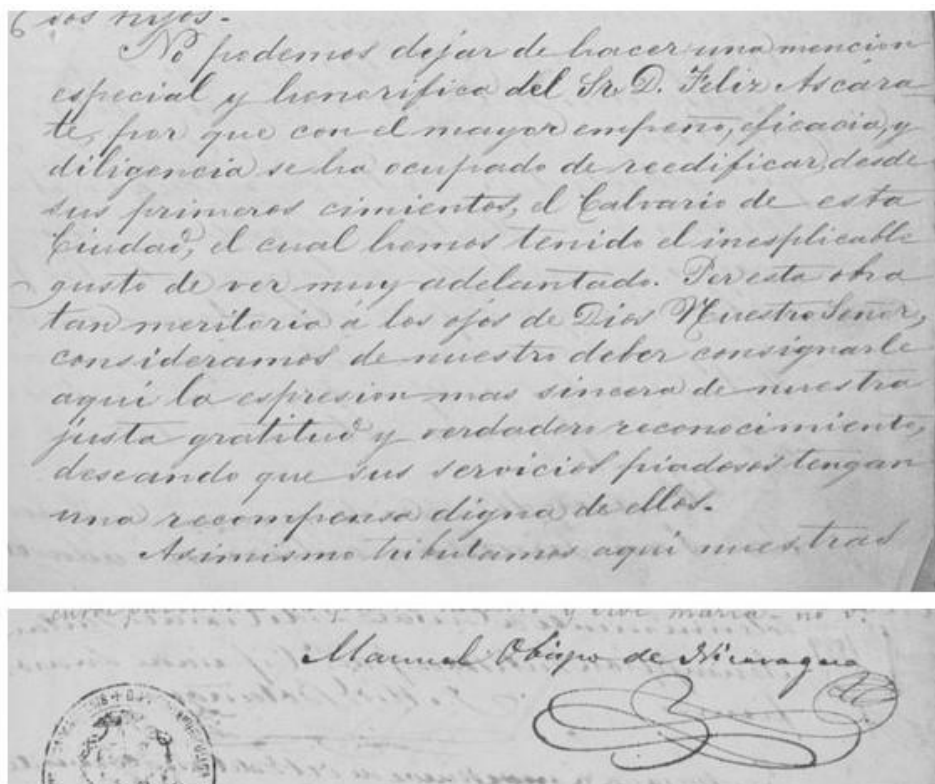 sos hijos.
No podemos dejar de hacer una mencion
especial y honorifica del Sr. D. Feliz Ascára-
te, por que con el mayor empeño, eficacia, y
diligencia se ha ocupado de reedificar, desde
sus primeros cimientos, el Calvario de esta
Ciudad, el cual hemos tenido el inesplicable
gusto de ver muy adelantado. Por esta obra
tan meritoria á los ojos de Dios Nuestro Señor,
consideramos de nuestro deber consignarle
aquí la espresion mas sincera de nuestra
justa gratitud y verdadero reconocimiento,
deseando que sus servicios piadosos tengan
una recompensa digna de ellos.
Asimismo tributamos aquí nuestras
Manuel Obispo de Nicaragua